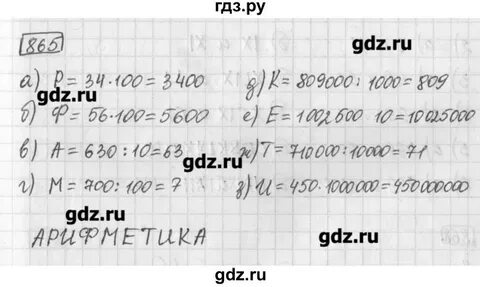 гдз.ру
865
gdz.ru
а) Р = 34·100 = 3400
б) Ф = 56·100 = 5600
в) А = 630 : 10 = 63
г) М = 700 : 100 = 7
gdz.ru
АРИФМЕТИКА
gdz.ru
gdz.ru
д) К = 809000 : 1000 = 809
gdz.ru
е) Е = 1002500 10 = 10025000
ж) Т = 710000 : 10000 = 71
gdz.ru
з) И = 450·1000000 = 450000000
gdz.ru
gdz.ru